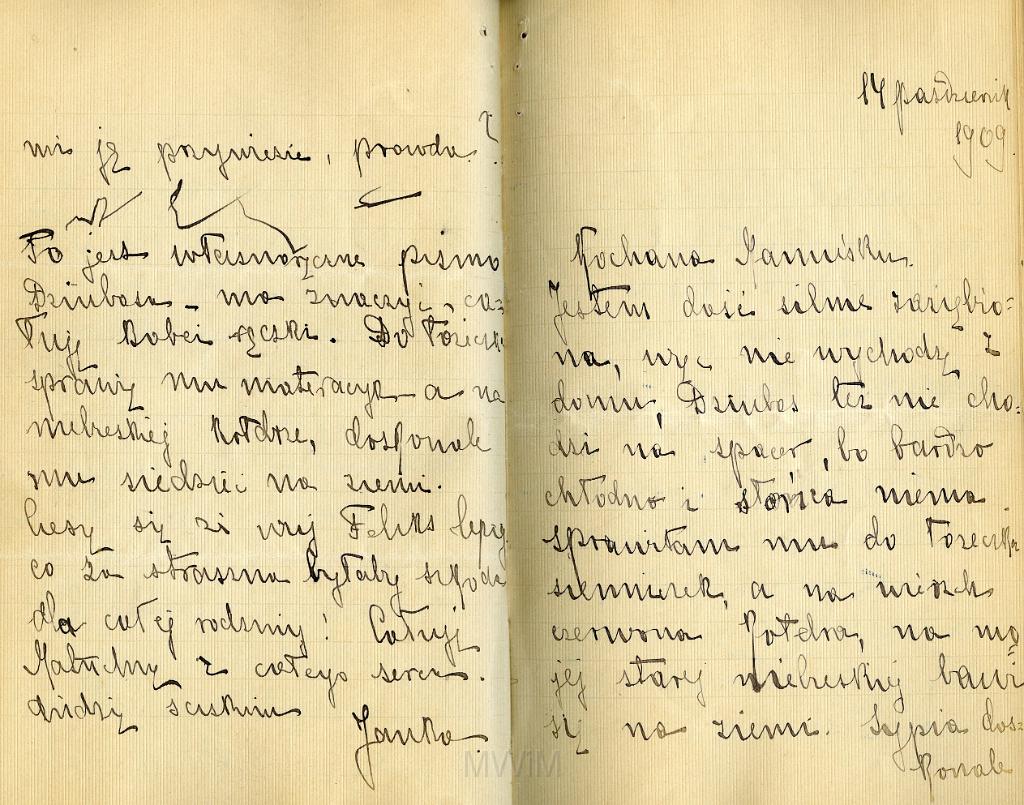 mi ją przyniesie, prawda?
To jest własnoręczne pismo
Dziubasa – ma znaczyć, ca-
łuję Babci rączki. Do łóżeczk
sprawię mu materacyk – a na
niebieskiej kołdrze, doskonale
mu siedzieć na ziemi.
Cieszy się że wuj Feliks lepiej
co za straszna byłaby szkoda
dla całej rodziny! Całuję
Matuchny z całego serca.
Janka.
14 październik
1909.
Kochana Mamuśku.
Jestem dość silnie zaziębio-
na, więc nie wychodzę z
domu, Dziubas też nie cho-
dzi na spacer, bo bardzo
chłodno i słońca niema.
Sprawiłam mu do łóżeczka
siennik, a na wierzch
czerwona kołdra, na mo
jej starej niebieskiej bawi
się na ziemi. Sypia dos-
konale
MWiM